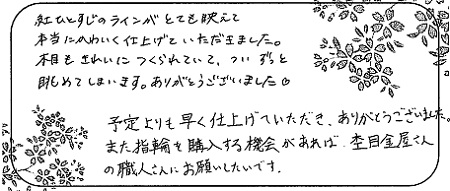 紅ひとすじのラインがとても映えて
本当にかわいく仕上げていただきました。
木目もきれいにつくられていて、ついずっと
眺めてしまいます。ありがとうございました☺
予定よりも早く仕上げていただき、ありがとうございました。
また指輪を購入する機会があれば、杢目金屋さん
の職人さんにお願いしたいです。